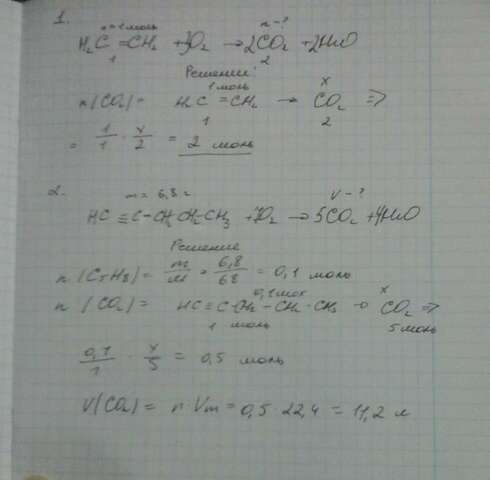 1. n=1 моль n-?
H₂C=CH₂ + 3O₂ → 2CO₂ + 2H₂O
1 2
Решение:
1 моль x
n(CO₂)= H₂C=CH₂ → CO₂ ⇒
1 2
= 1/1 · x/2 = 2 моль
2. m = 6,8 г V-?
HC≡C-CH₂-CH₂-CH₃ + 7O₂ → 5CO₂ + 4H₂O
Решение
n(C₅H₈) = m/M = 6,8/68 = 0,1 моль
0,1 мол x
n(CO₂)= HC≡C-CH₂-CH₂-CH₃ → CO₂ ⇒
1 моль 5 моль
0,1/1 · x/5 = 0,5 моль
V(CO₂) = n·Vm = 0,5·22,4 = 11,2 л